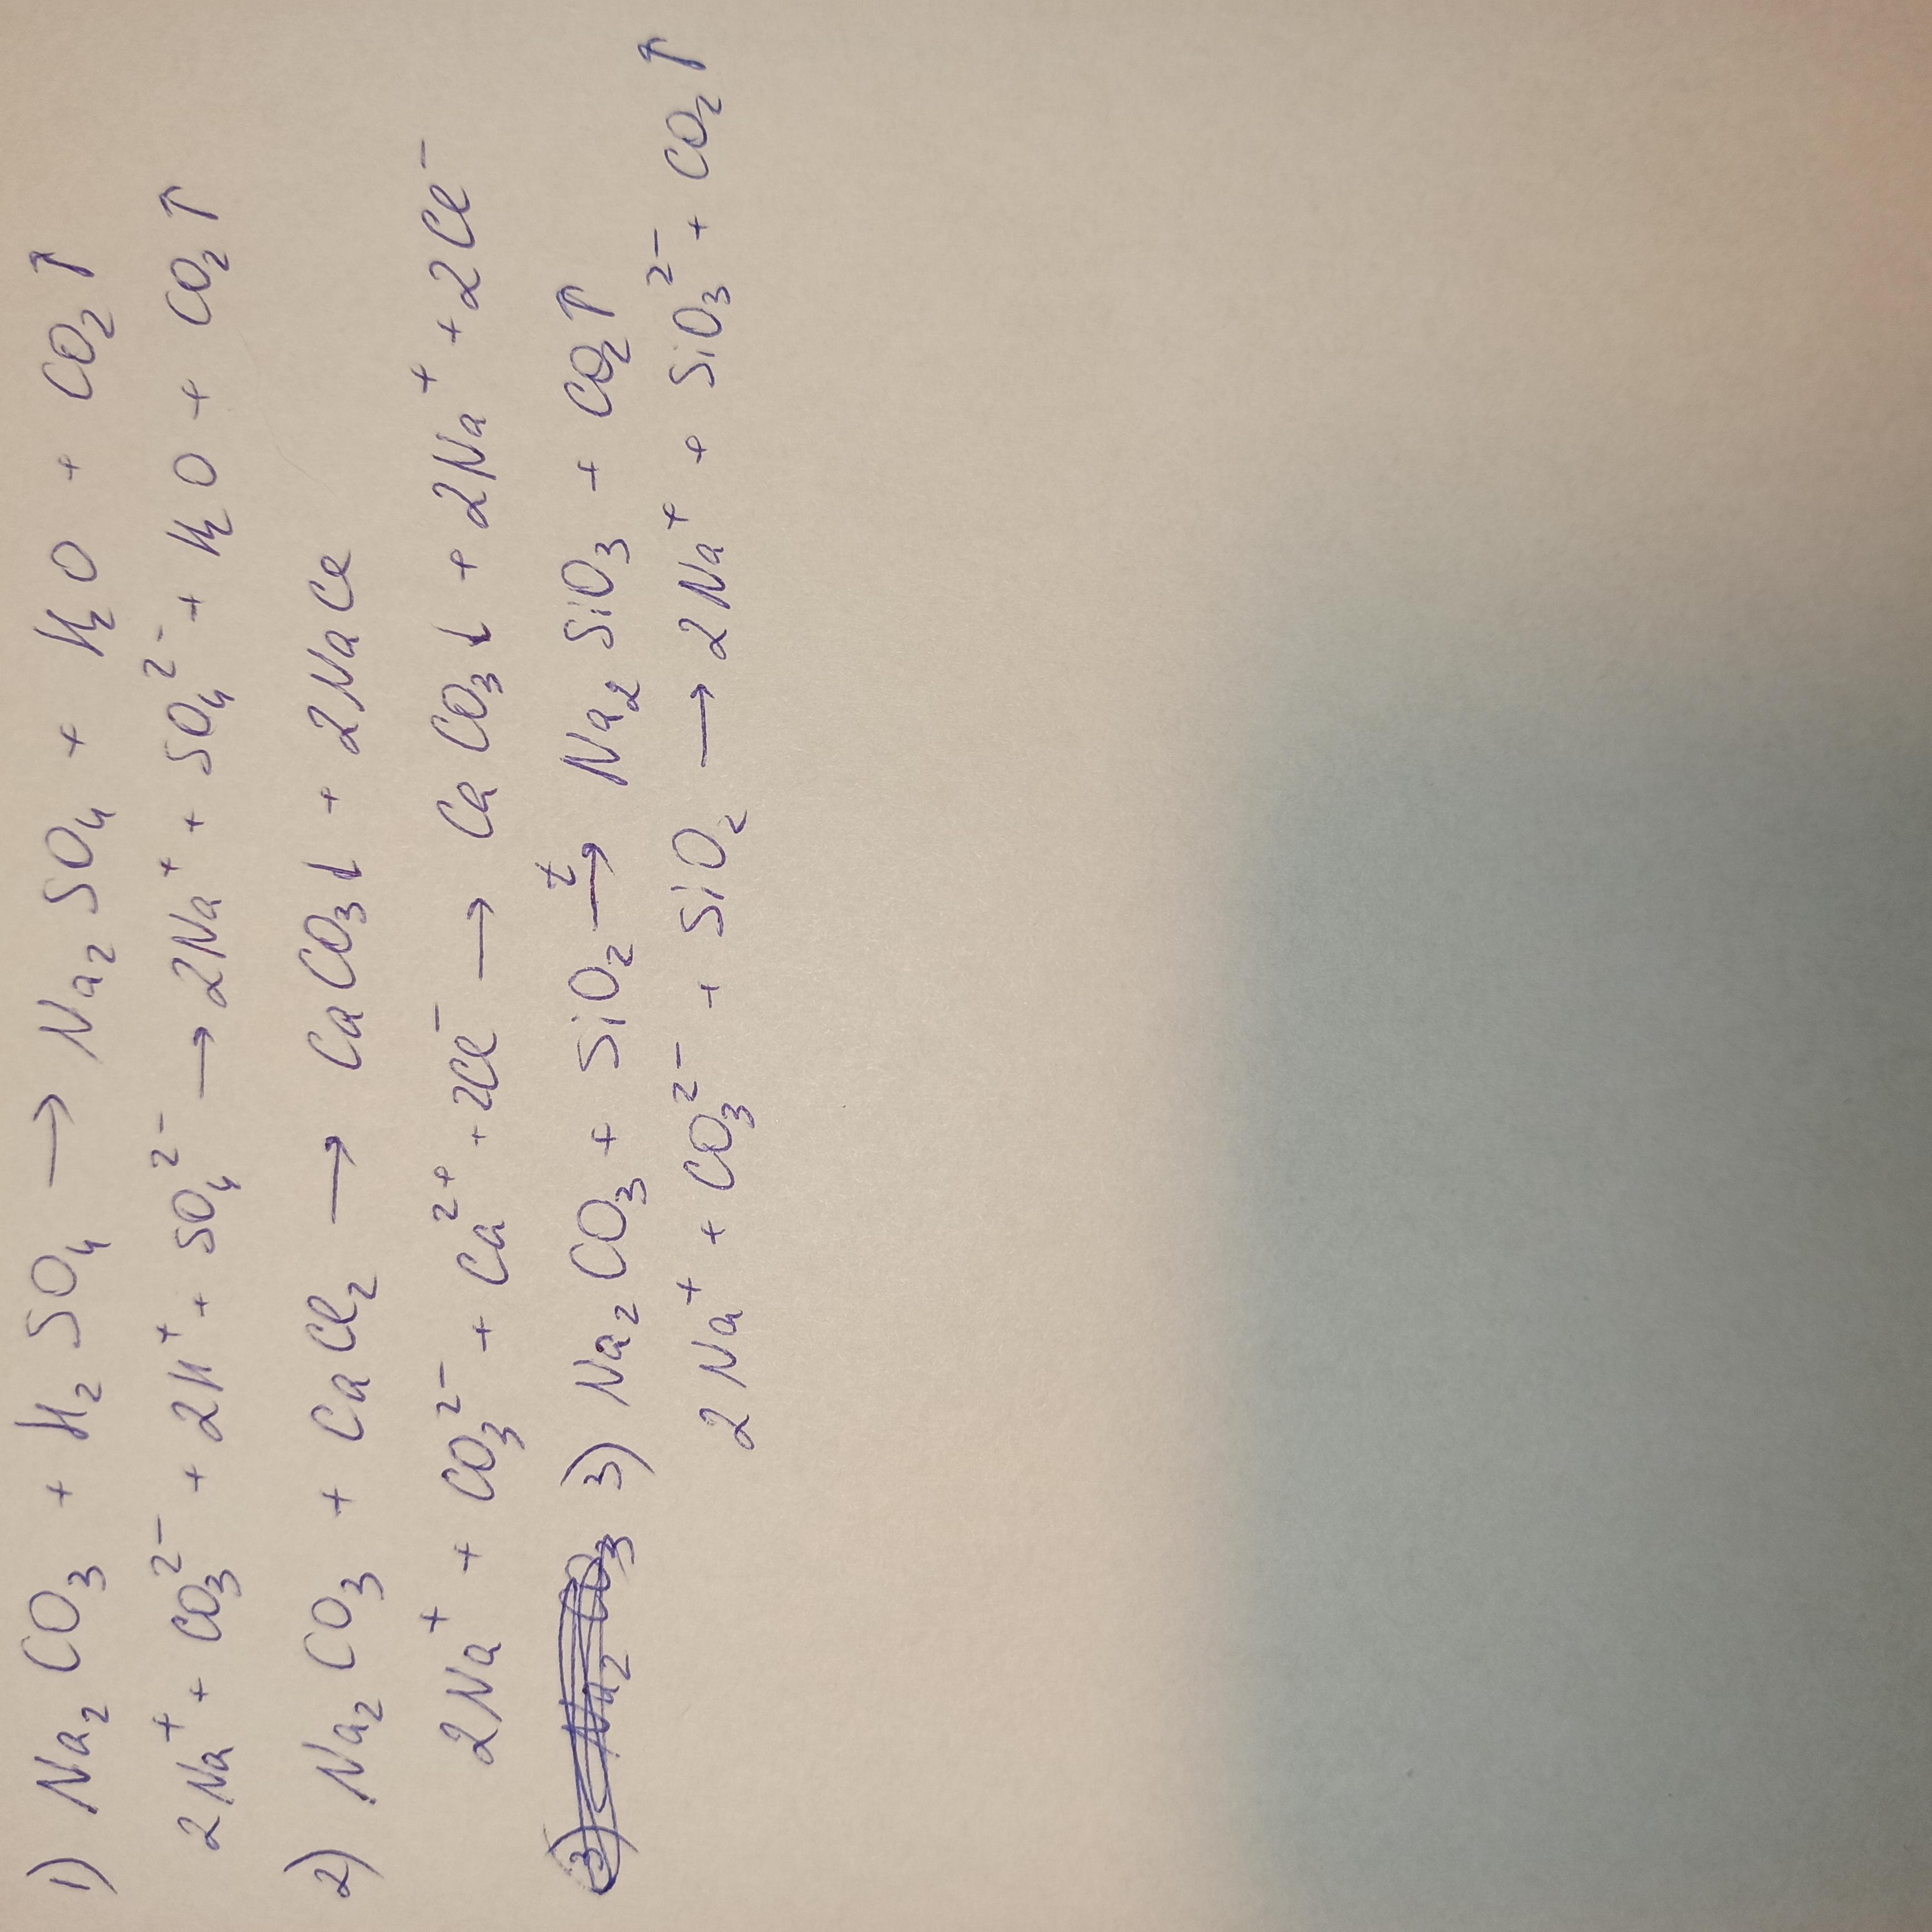 1) Na₂CO₃ + H₂SO₄ → Na₂SO₄ + H₂O + CO₂↑
2Na⁺ + CO₃²⁻ + 2H⁺ + SO₄²⁻ → 2Na⁺ + SO₄²⁻ + H₂O + CO₂↑
2) Na₂CO₃ + CaCl₂ → CaCO₃↓ + 2NaCl
2Na⁺ + CO₃²⁻ + Ca²⁺ + 2Cl⁻ → CaCO₃↓ + 2Na⁺ + 2Cl⁻
3) Na₂CO₃ + SiO₂ →ᵗ Na₂SiO₃ + CO₂↑
2Na⁺ + CO₃²⁻ + SiO₂ → 2Na⁺ + SiO₃²⁻ + CO₂↑